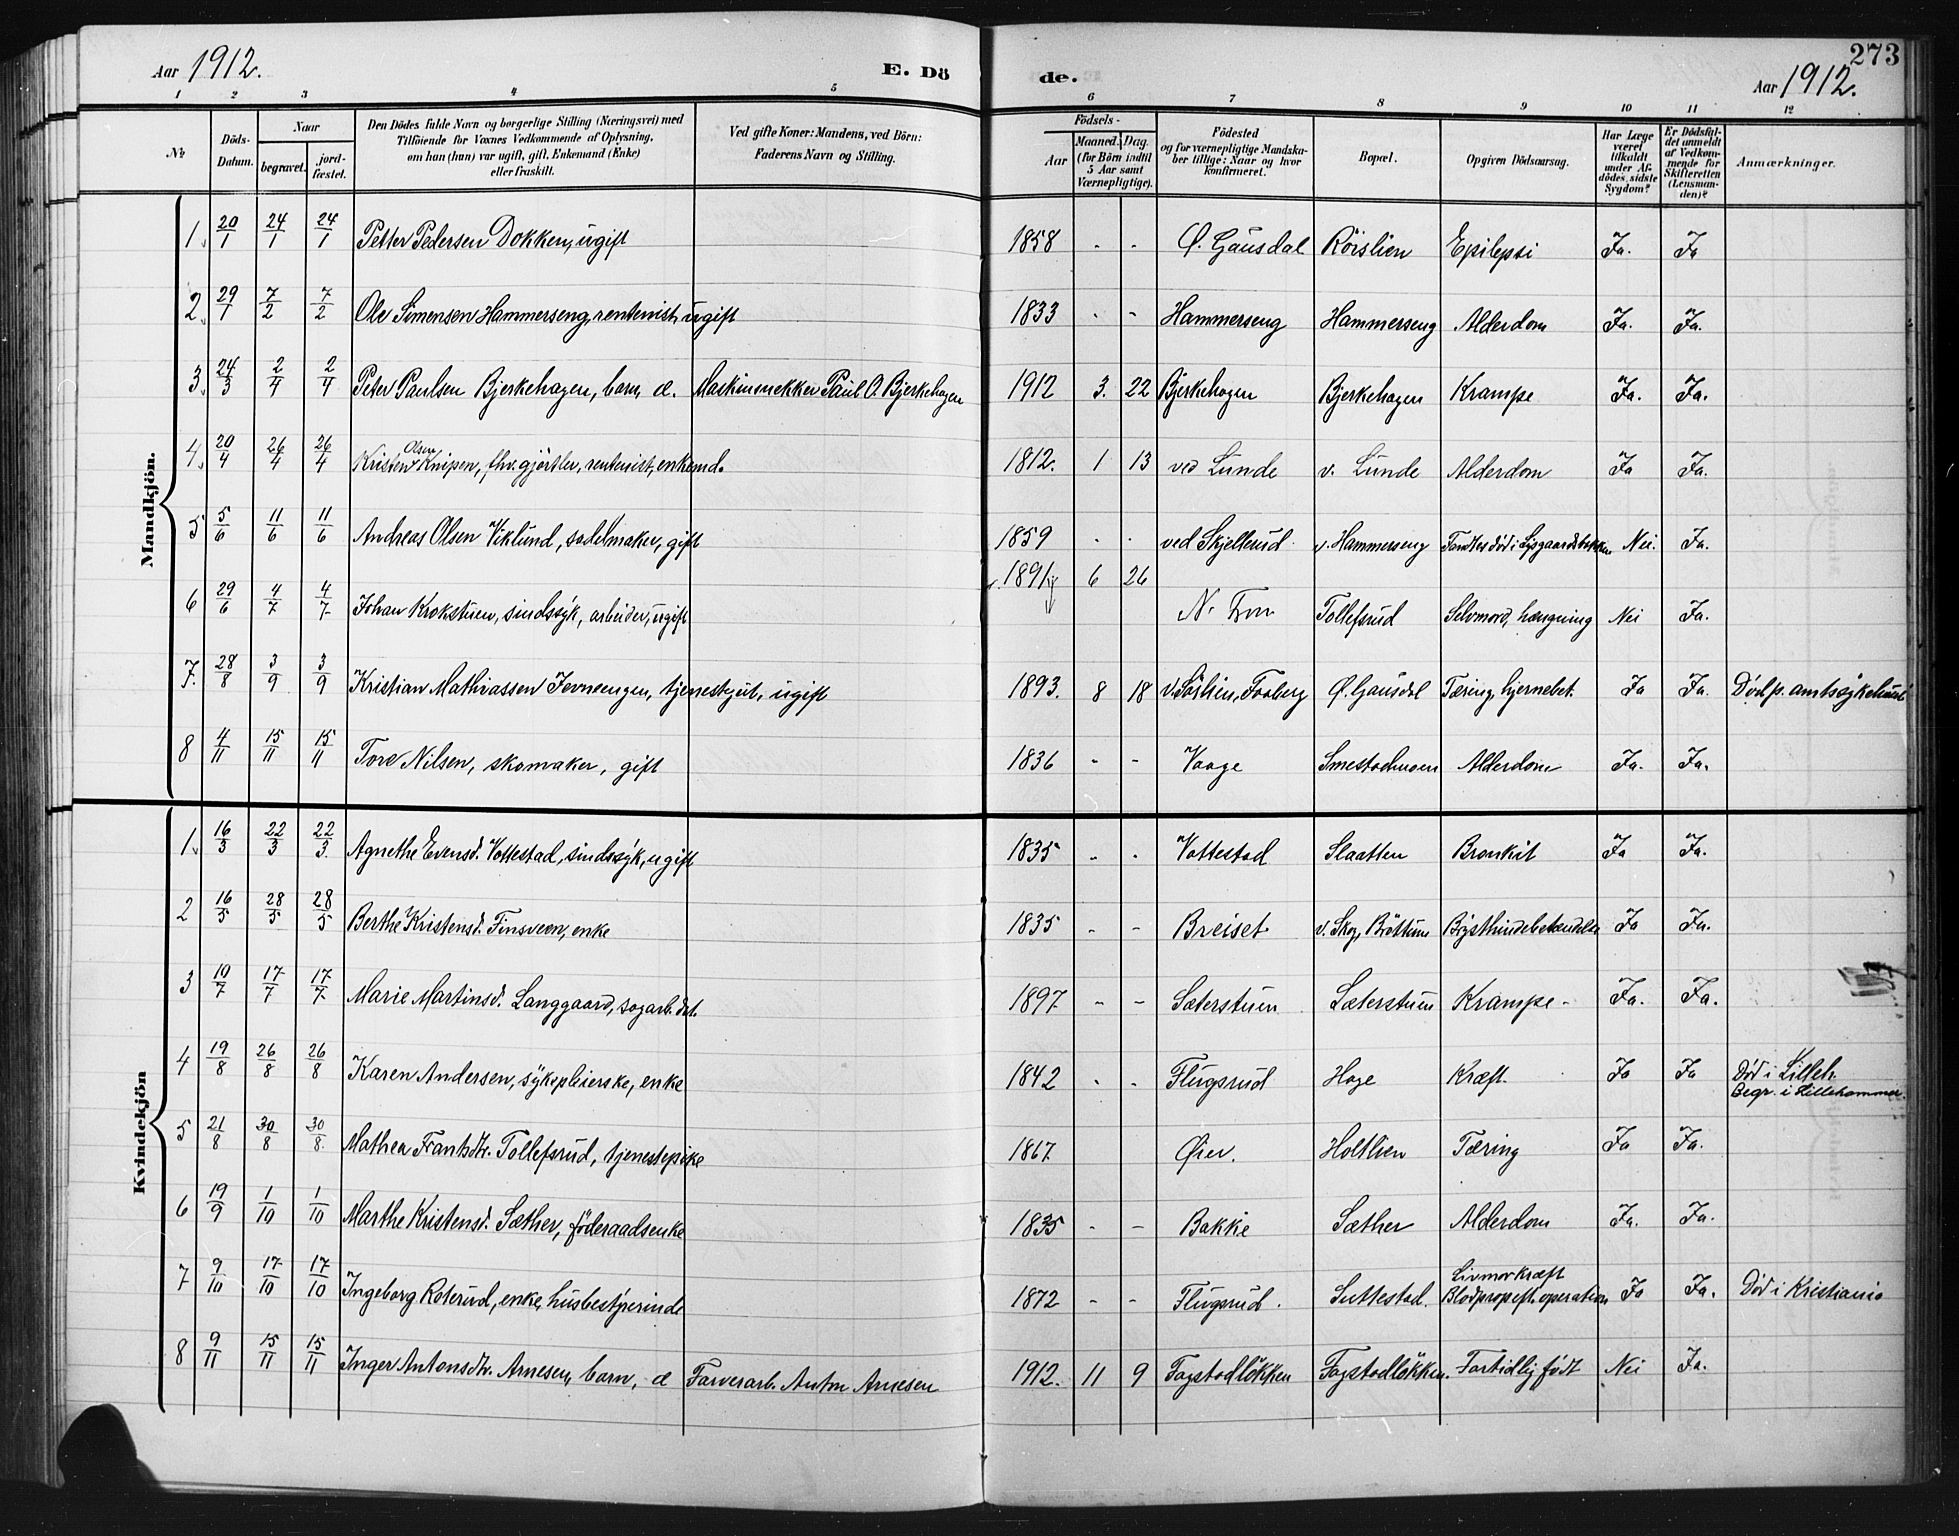 Aar 1912. E. Dö de. Aar 1912. 273
1 2 3 4 5 6 7 8 9 10 11 12
No. Döds-Datum. Naar begravet. jord-fæstet. Den Dödes fulde Navn og borgerlige Stilling (Næringsvei) med Tilföiende for Voxnes Vedkommende af Oplysning, om han (hun) var ugift, gift, Enkemand (Enke) eller fraskilt. Ved gifte Koner: Mandens, ved Börn: Faderens Navn og Stilling. Födsels- Aar Maaned. Dag. (for Börn indtil 5 Aar samt Værnepligtige). Födested og for værnepligtige Mandskaber tillige: Naar og hvor konfirmeret. Bopæl. Opgiven Dödsaarsag. Har Læge været tilkaldt under Afdödes sidste Sygdom? Er Dödsfaldet anmeldt af Vedkommende for Skifteretten (Lensmanden)? Anmærkninger.
Mandkjön.
1 20/1 24/1 24/1 Petter Pedersen Dokken, ugift 1858 - - Ø. Gausdal Röislien Epilepsi Ja. Ja
2 29/1 7/2 7/2 Ole Simensen Hammerseng, rentenist, ugift 1833 - - Hammerseng Hammerseng Alderdom Ja. Ja.
3 24/3 2/4 2/4 Peter Paulsen Bjerkehagen, barn, æ. Maskinsnekker Paul O. Bjerkehagen 1912 3. 22 Bjerkehagen Bjerkehagen Krampe Ja. Ja.
4 20/4 26/4 26/4 Kristen Olsen Knipen, fhv. gjörtler, rentenist, enkemd. 1812. 1 13 ved Lunde v. Lunde Alderdom Ja Ja.
5 5/6 11/6 11/6 Andreas Olsen Viklund, sadelmaker, gift 1859 - - ved Skjellerud v. Hammerseng Fandtes död i Lysgaardsbakken Nei. Ja.
6 29/6 4/7 4/7 Johan Krokstuen, sindssyk, arbeider, ugift 1891 6 26 N. Fron Tollefsrud Selvmord, hængning Nei Ja.
7. 28/8 3/9 3/9 Kristian Mathiassen Jevneengen, tjenestegut, ugift 1893. 8 18 v. Sörlien, Faaberg Ø. Gausdal Tæring, hjernebet. Ja Ja. Död p. amtssykehuset
8 4/11 15/11 15/11 Tore Nilsen, skomaker, gift 1836 - - Vaage Smestadmoen Alderdom Ja. Ja.
Kvindekjön
1 16/3 22/3 22/3. Agnethe Evensd. Vottestad, sindssyk, ugift 1835 - - Vottestad Slaatten Bronkit Ja Ja.
2 16/5 28/5 28/5 Berthe Kristensd. Finsveen, enke 1835 - - Breiset v. Skog, Bröttum Brysthindebetændelse Ja Ja.
3 10/7 17/7 17/7 Marie Martinsd. Langgaard, sagarb. dat. 1897 - - Sæterstuen Sæterstuen Krampe - Ja. Ja.
4 19/8 26/8 26/8 Karen Andersen, sykepleierske, enke 1842 - - Flugsrud Hage Kræft. Ja Ja Död i Lilleh. Begr. i Lillehammer.
5 21/8 30/8 30/8. Mathea Frantsdtr. Tollefsrud, tjenestepike 1867 Øier. Holtlien Tæring Ja Ja.
6 19/9 1/10 1/10 Marthe Kristensd. Sæther, föderaadsenke 1835 - - Bakke Sæther Alderdom Ja. Ja.
7 9/10 17/10 17/10 Ingeborg Roterud, enke, husbestyrerinde 1872 - - Flugsrud. Suttestad. Livmorkræft Blodprop eft. operation Ja Ja. Död i Kristiania
8 9/11 15/11 15/11 Inger Antonsdtr. Arnesen, barn, æ Farverarb. Anton Arnesen 1912. 11 9 Fagstadlökken Fagstadlökken. Fortidlig født Nei Ja.